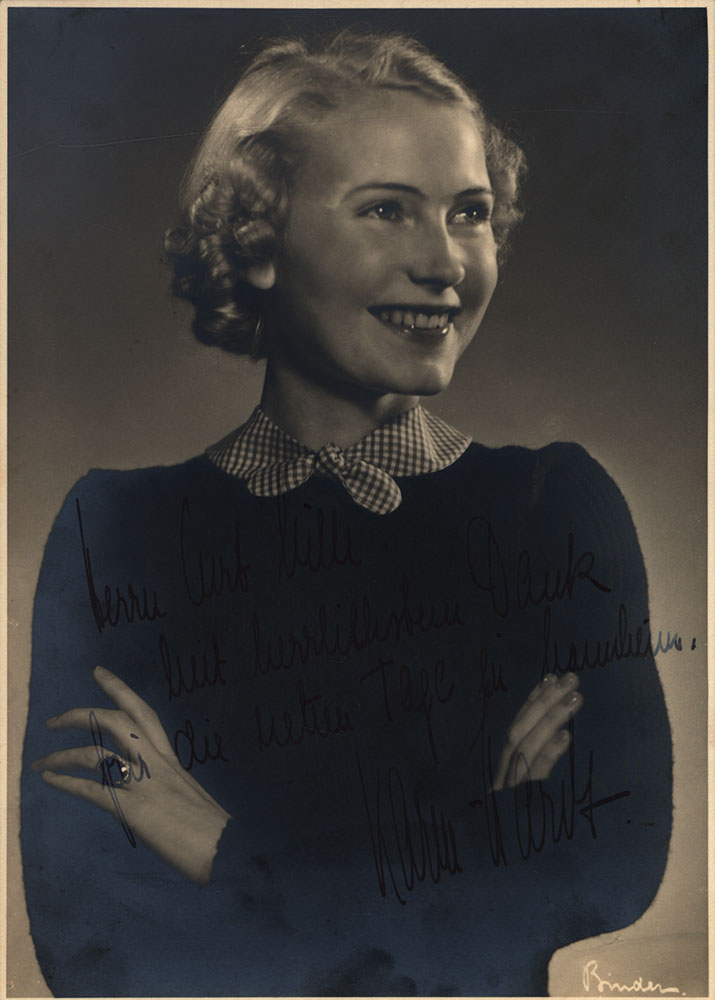 Herrn Curt Wille
mit herzlichstem Dank
für die netten Tage in Mannheim.
Karin Hardt.
Binder